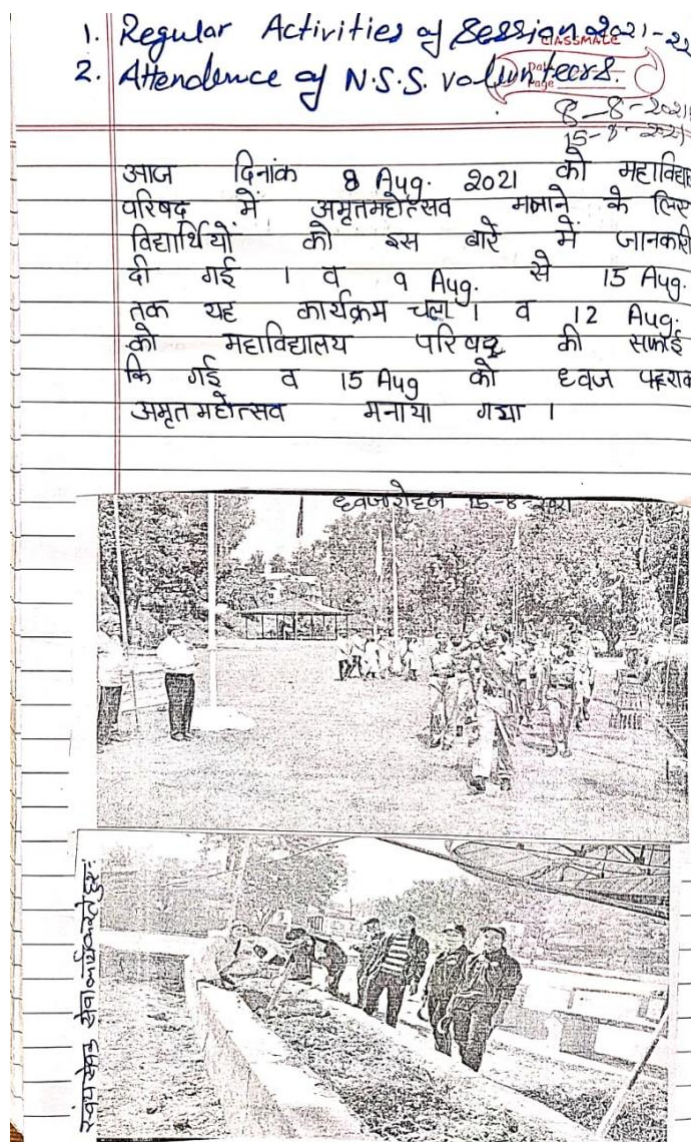 1. Regular Activities of Session 2021-22
CLASSMATE
2. Attendence of N.S.S. volunteers.
Date
Page
8-8-2021
15-8-2021
आज दिनांक 8 Aug. 2021 को महाविद्या
परिषद में अमृतमहोत्सव मनाने के लिए
विद्यार्थियों को इस बारे में जानकारी
दी गई । व 9 Aug. से 15 Aug.
तक यह कार्यक्रम चला । व 12 Aug.
को महाविद्यालय परिषद की सफाई
कि गई व 15 Aug को ध्वज फहराक
अमृत महोत्सव मनाया गया ।
ध्वजारोहण 15-8-2021
स्वंयसेवक सेवा कार्य करते हुए: